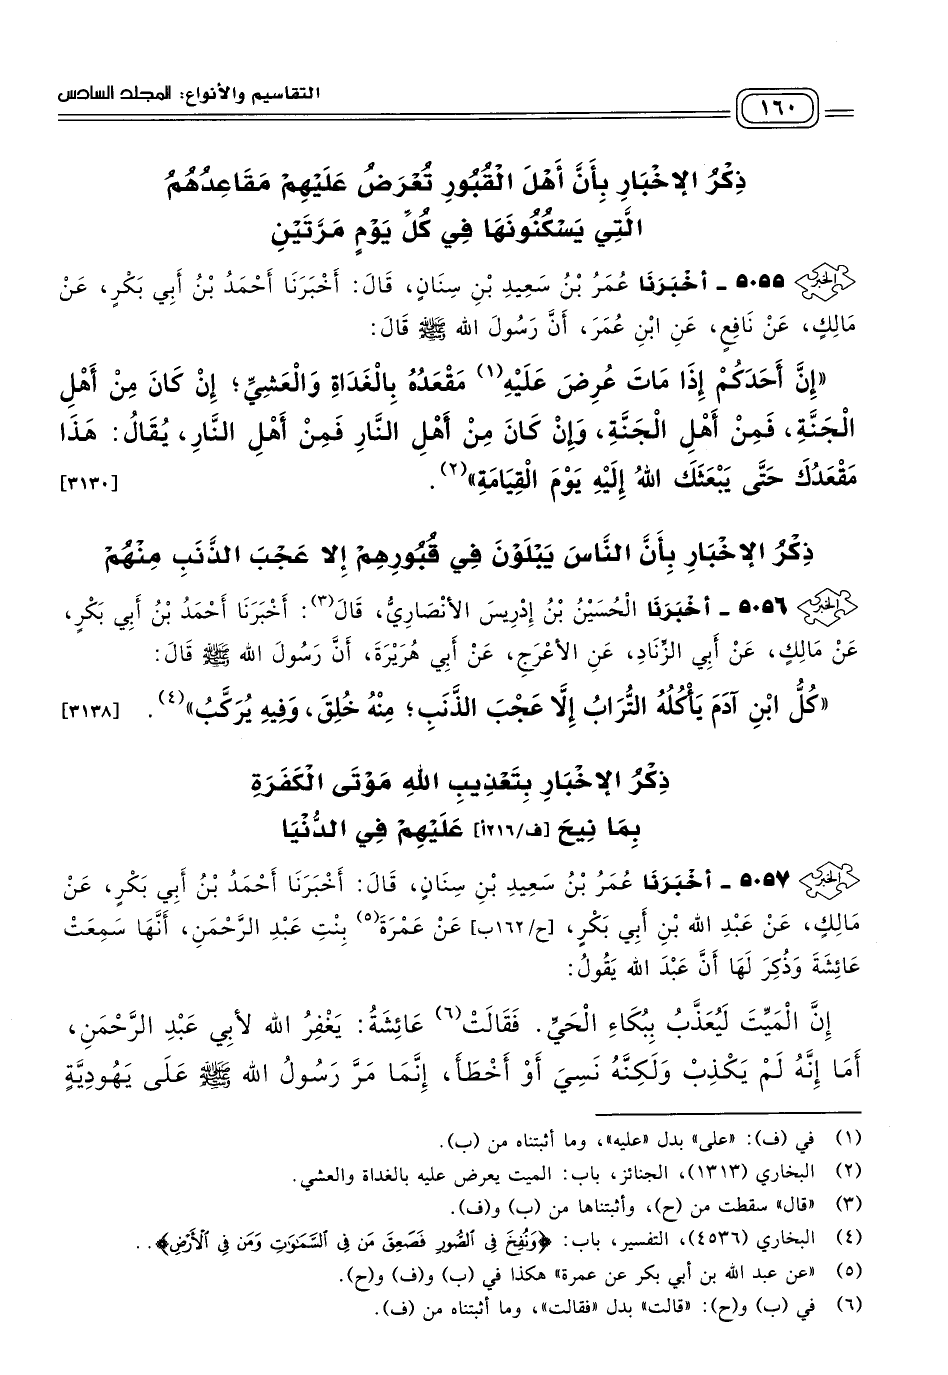 التقاسيم والأنواع: المجلد السادس
١٦٠
ذِكْرُ الإخْبَارِ بِأَنَّ أَهْلَ الْقُبُورِ تُعْرَضُ عَلَيْهِمْ مَقَاعِدُهُمُ
الَّتِي يَسْكُنُونَهَا فِي كُلِّ يَوْمٍ مَرَّتَيْنِ
الخبر ٥٠٥٥ ـ أخْبَرَنَا عُمَرُ بْنُ سَعِيدِ بْنِ سِنَانٍ، قَالَ: أَخْبَرَنَا أَحْمَدُ بْنُ أَبِي بَكْرٍ، عَنْ
مَالِكٍ، عَنْ نَافِعٍ، عَنِ ابْنِ عُمَرَ، أَنَّ رَسُولَ الله ﷺ قَالَ:
«إِنَّ أَحَدَكُمْ إِذَا مَاتَ عُرِضَ عَلَيْهِ(١) مَقْعَدُهُ بِالْغَدَاةِ وَالْعَشِيِّ؛ إِنْ كَانَ مِنْ أَهْلِ
الْجَنَّةِ، فَمِنْ أَهْلِ الْجَنَّةِ، وَإِنْ كَانَ مِنْ أَهْلِ النَّارِ فَمِنْ أَهْلِ النَّارِ، يُقَالُ: هَذَا
مَقْعَدُكَ حَتَّى يَبْعَثَكَ اللهُ إِلَيْهِ يَوْمَ الْقِيَامَةِ»(٢). [٣١٣٠]
ذِكْرُ الإخْبَارِ بِأَنَّ النَّاسَ يَبْلَوْنَ فِي قُبُورِهِمْ إلا عَجْبَ الذَّنَبِ مِنْهُمْ
الخبر ٥٠٥٦ ـ أخْبَرَنَا الْحُسَيْنُ بْنُ إِدْرِيسَ الأنْصَارِيُّ، قَالَ(٣): أَخْبَرَنَا أَحْمَدُ بْنُ أَبِي بَكْرٍ،
عَنْ مَالِكٍ، عَنْ أَبِي الزِّنَادِ، عَنِ الأعْرَجِ، عَنْ أَبِي هُرَيْرَةَ، أَنَّ رَسُولَ الله ﷺ قَالَ:
«كُلُّ ابْنِ آدَمَ يَأْكُلُهُ التُّرَابُ إِلَّا عَجْبَ الذَّنَبِ؛ مِنْهُ خُلِقَ، وَفِيهِ يُرَكَّبُ»(٤). [٣١٣٨]
ذِكْرُ الإخْبَارِ بِتَعْذِيبِ اللهِ مَوْتَى الْكَفَرَةِ
بِمَا نِيحَ [ف/٢١٦أ] عَلَيْهِمْ فِي الدُّنْيَا
الخبر ٥٠٥٧ ـ أخْبَرَنَا عُمَرُ بْنُ سَعِيدِ بْنِ سِنَانٍ، قَالَ: أَخْبَرَنَا أَحْمَدُ بْنُ أَبِي بَكْرٍ، عَنْ
مَالِكٍ، عَنْ عَبْدِ الله بْنِ أَبِي بَكْرٍ، [ح/١٦٢ب] عَنْ عَمْرَةَ(٥) بِنْتِ عَبْدِ الرَّحْمَنِ، أَنَّهَا سَمِعَتْ
عَائِشَةَ وَذُكِرَ لَهَا أَنَّ عَبْدَ الله يَقُولُ:
إِنَّ الْمَيِّتَ لَيُعَذَّبُ بِبُكَاءِ الْحَيِّ. فَقَالَتْ(٦) عَائِشَةُ: يَغْفِرُ الله لأبِي عَبْدِ الرَّحْمَنِ،
أَمَا إِنَّهُ لَمْ يَكْذِبْ وَلَكِنَّهُ نَسِيَ أَوْ أَخْطَأَ، إِنَّمَا مَرَّ رَسُولُ الله ﷺ عَلَى يَهُودِيَّةٍ
(١) في (ف): «على» بدل «عليه»، وما أثبتناه من (ب).
(٢) البخاري (١٣١٣)، الجنائز، باب: الميت يعرض عليه بالغداة والعشي.
(٣) «قال» سقطت من (ح)، وأثبتناها من (ب) و(ف).
(٤) البخاري (٤٥٣٦)، التفسير، باب: ﴿وَنُفِخَ فِي الصُّورِ فَصَعِقَ مَن فِي السَّمَٰوَٰتِ وَمَن فِي الْأَرْضِ﴾..
(٥) «عن عبد الله بن أبي بكر عن عمرة» هكذا في (ب) و(ف) و(ح).
(٦) في (ب) و(ح): «قالت» بدل «فقالت»، وما أثبتناه من (ف).